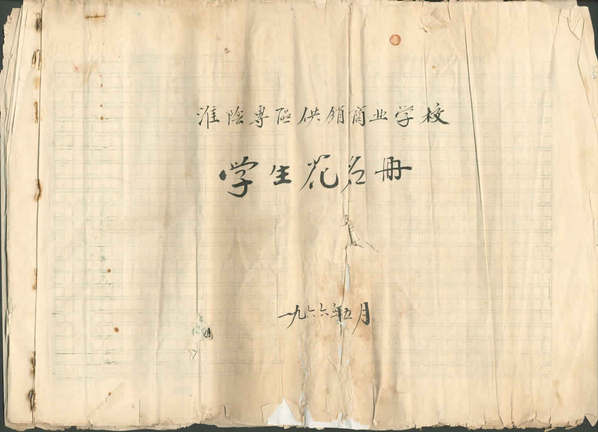 淮陰専区供销商业学校
学生花名册
一九六六年五月